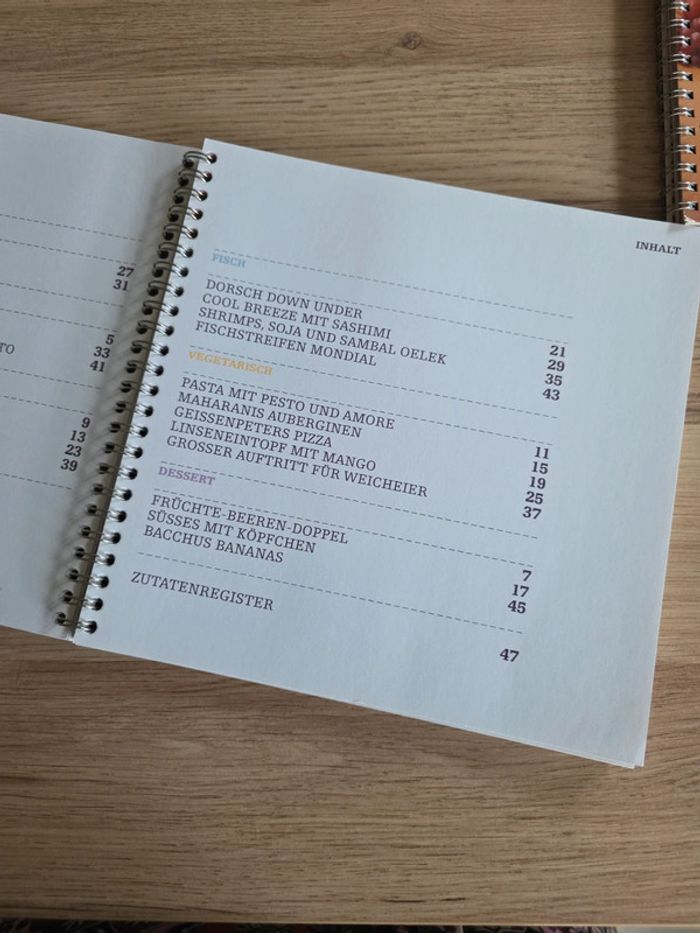 27
31
5
TO 33
41
9
13
23
39
INHALT
FISCH
DORSCH DOWN UNDER 21
COOL BREEZE MIT SASHIMI 29
SHRIMPS, SOJA UND SAMBAL OELEK 35
FISCHSTREIFEN MONDIAL 43
VEGETARISCH
PASTA MIT PESTO UND AMORE 11
MAHARANIS AUBERGINEN 15
GEISSENPETERS PIZZA 19
LINSENEINTOPF MIT MANGO 25
GROSSER AUFTRITT FÜR WEICHEIER 37
DESSERT
FRÜCHTE-BEEREN-DOPPEL 7
SÜSSES MIT KÖPFCHEN 17
BACCHUS BANANAS 45
ZUTATENREGISTER 47